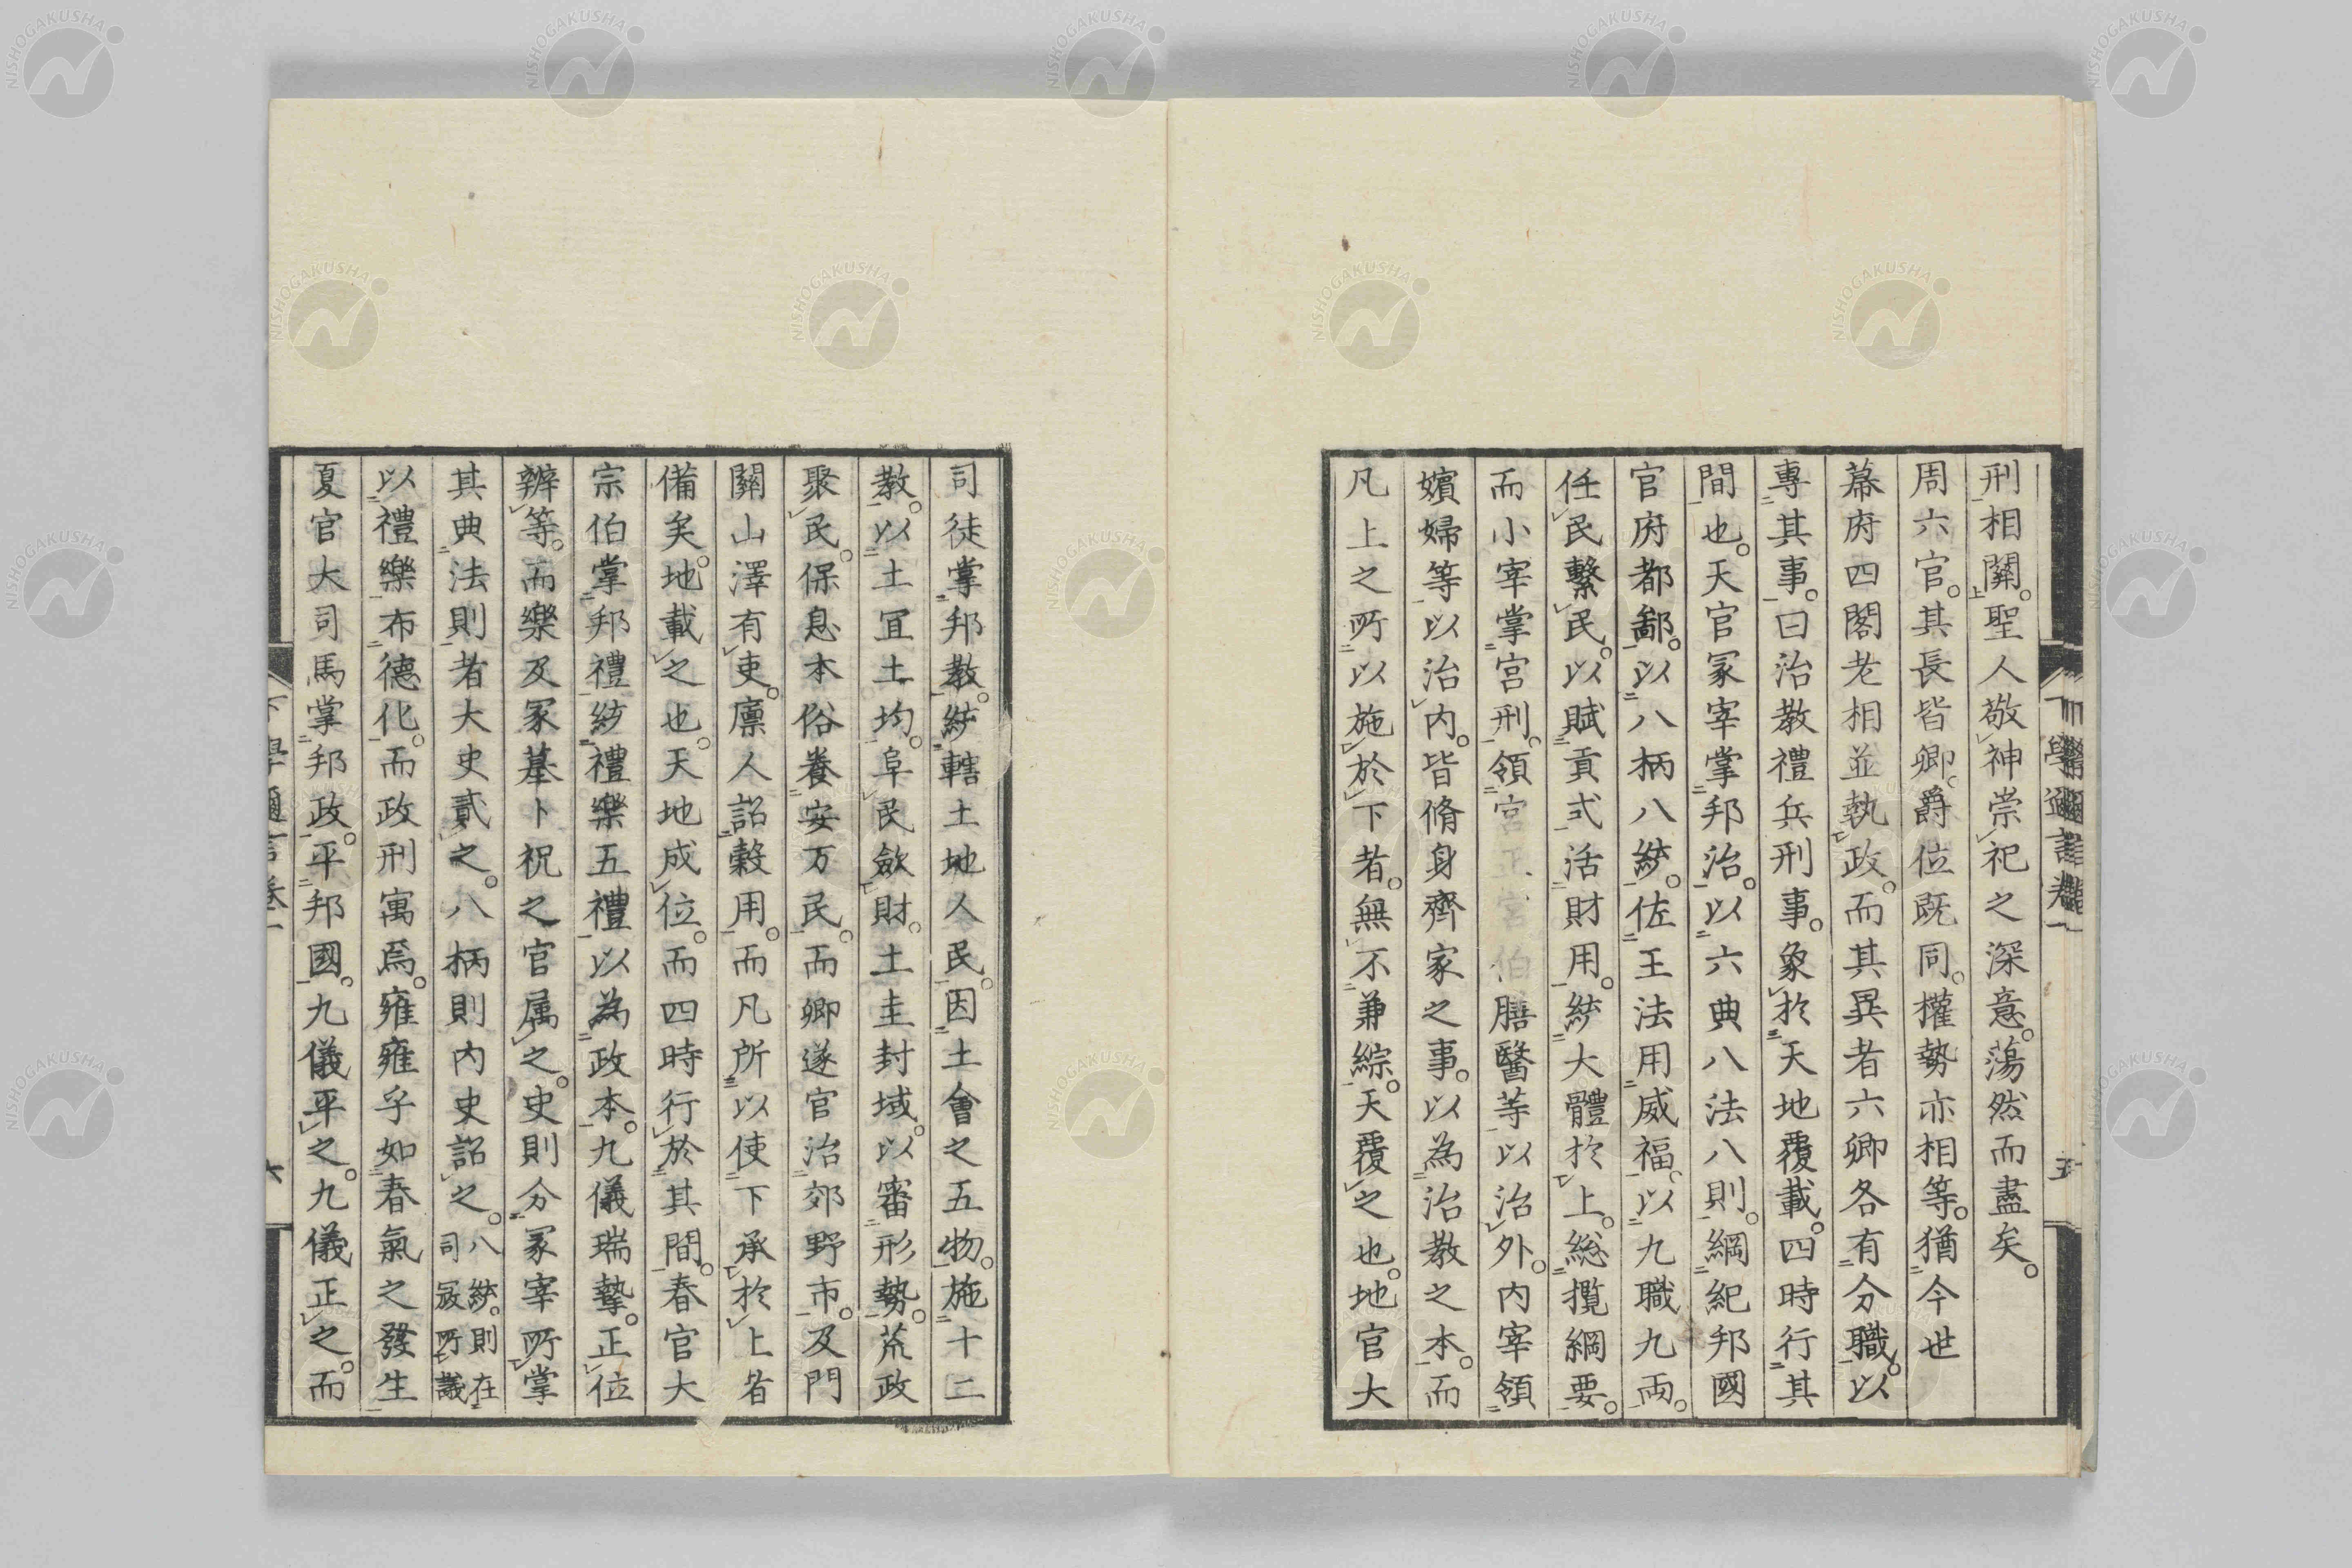 刑相關。聖人敬神崇祀之深意。蕩然而盡矣。
周六官。其長皆卿。爵位既同。權勢亦相等。猶今世
幕府四閣老相並執政。而其異者六卿各有分職。以
專其事。曰治教禮兵刑事。象於天地覆載。四時行其
間也。天官冢宰掌邦治。以六典八法八則。綱紀邦國
官府都鄙。以八柄八統。佐王法用威福。以九職九兩。
任民繫民。以賦貢式活財用。統大體於上。總攬綱要。
而小宰掌宮刑。領宮正宮伯膳醫等以治外。內宰領
嬪婦等以治內。皆脩身齊家之事。以為治教之本。而
凡上之所以施於下者。無不兼綜。天覆之也。地官大
司徒掌邦教。統轄土地人民。因土會之五物。施十二
教。以土宜土均。阜民斂財。土圭封域。以審形勢。荒政
聚民。保息本俗養安万民。而卿遂官治郊野市。及門
關山澤有吏。廩人詔穀用。而凡所以使下承於上者
備矣。地載之也。天地成位。而四時行於其間。春官大
宗伯掌邦禮。統禮樂五禮以為政本。九儀瑞摯。正位
辨等。而樂及冢墓卜祝之官属之。史則分冢宰所掌
其典法則者大史貳之。八柄則內史詔之。八統。則在司寇所議
以禮樂布德化。而政刑寓焉。雍雍乎如春氣之發生
夏官大司馬掌邦政。平邦國。九儀平之。九儀正之。而